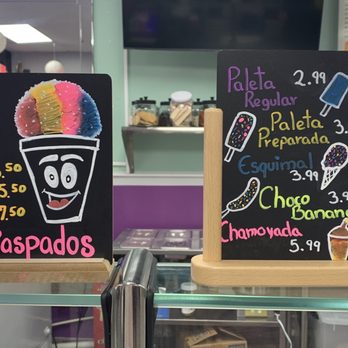 .50
5.50
7.50
Raspados
Paleta
Regular
2.99
Paleta
Preparada
3.
Esquimal
3.99
Choco
Banana
3.99
Chamoyada
5.99